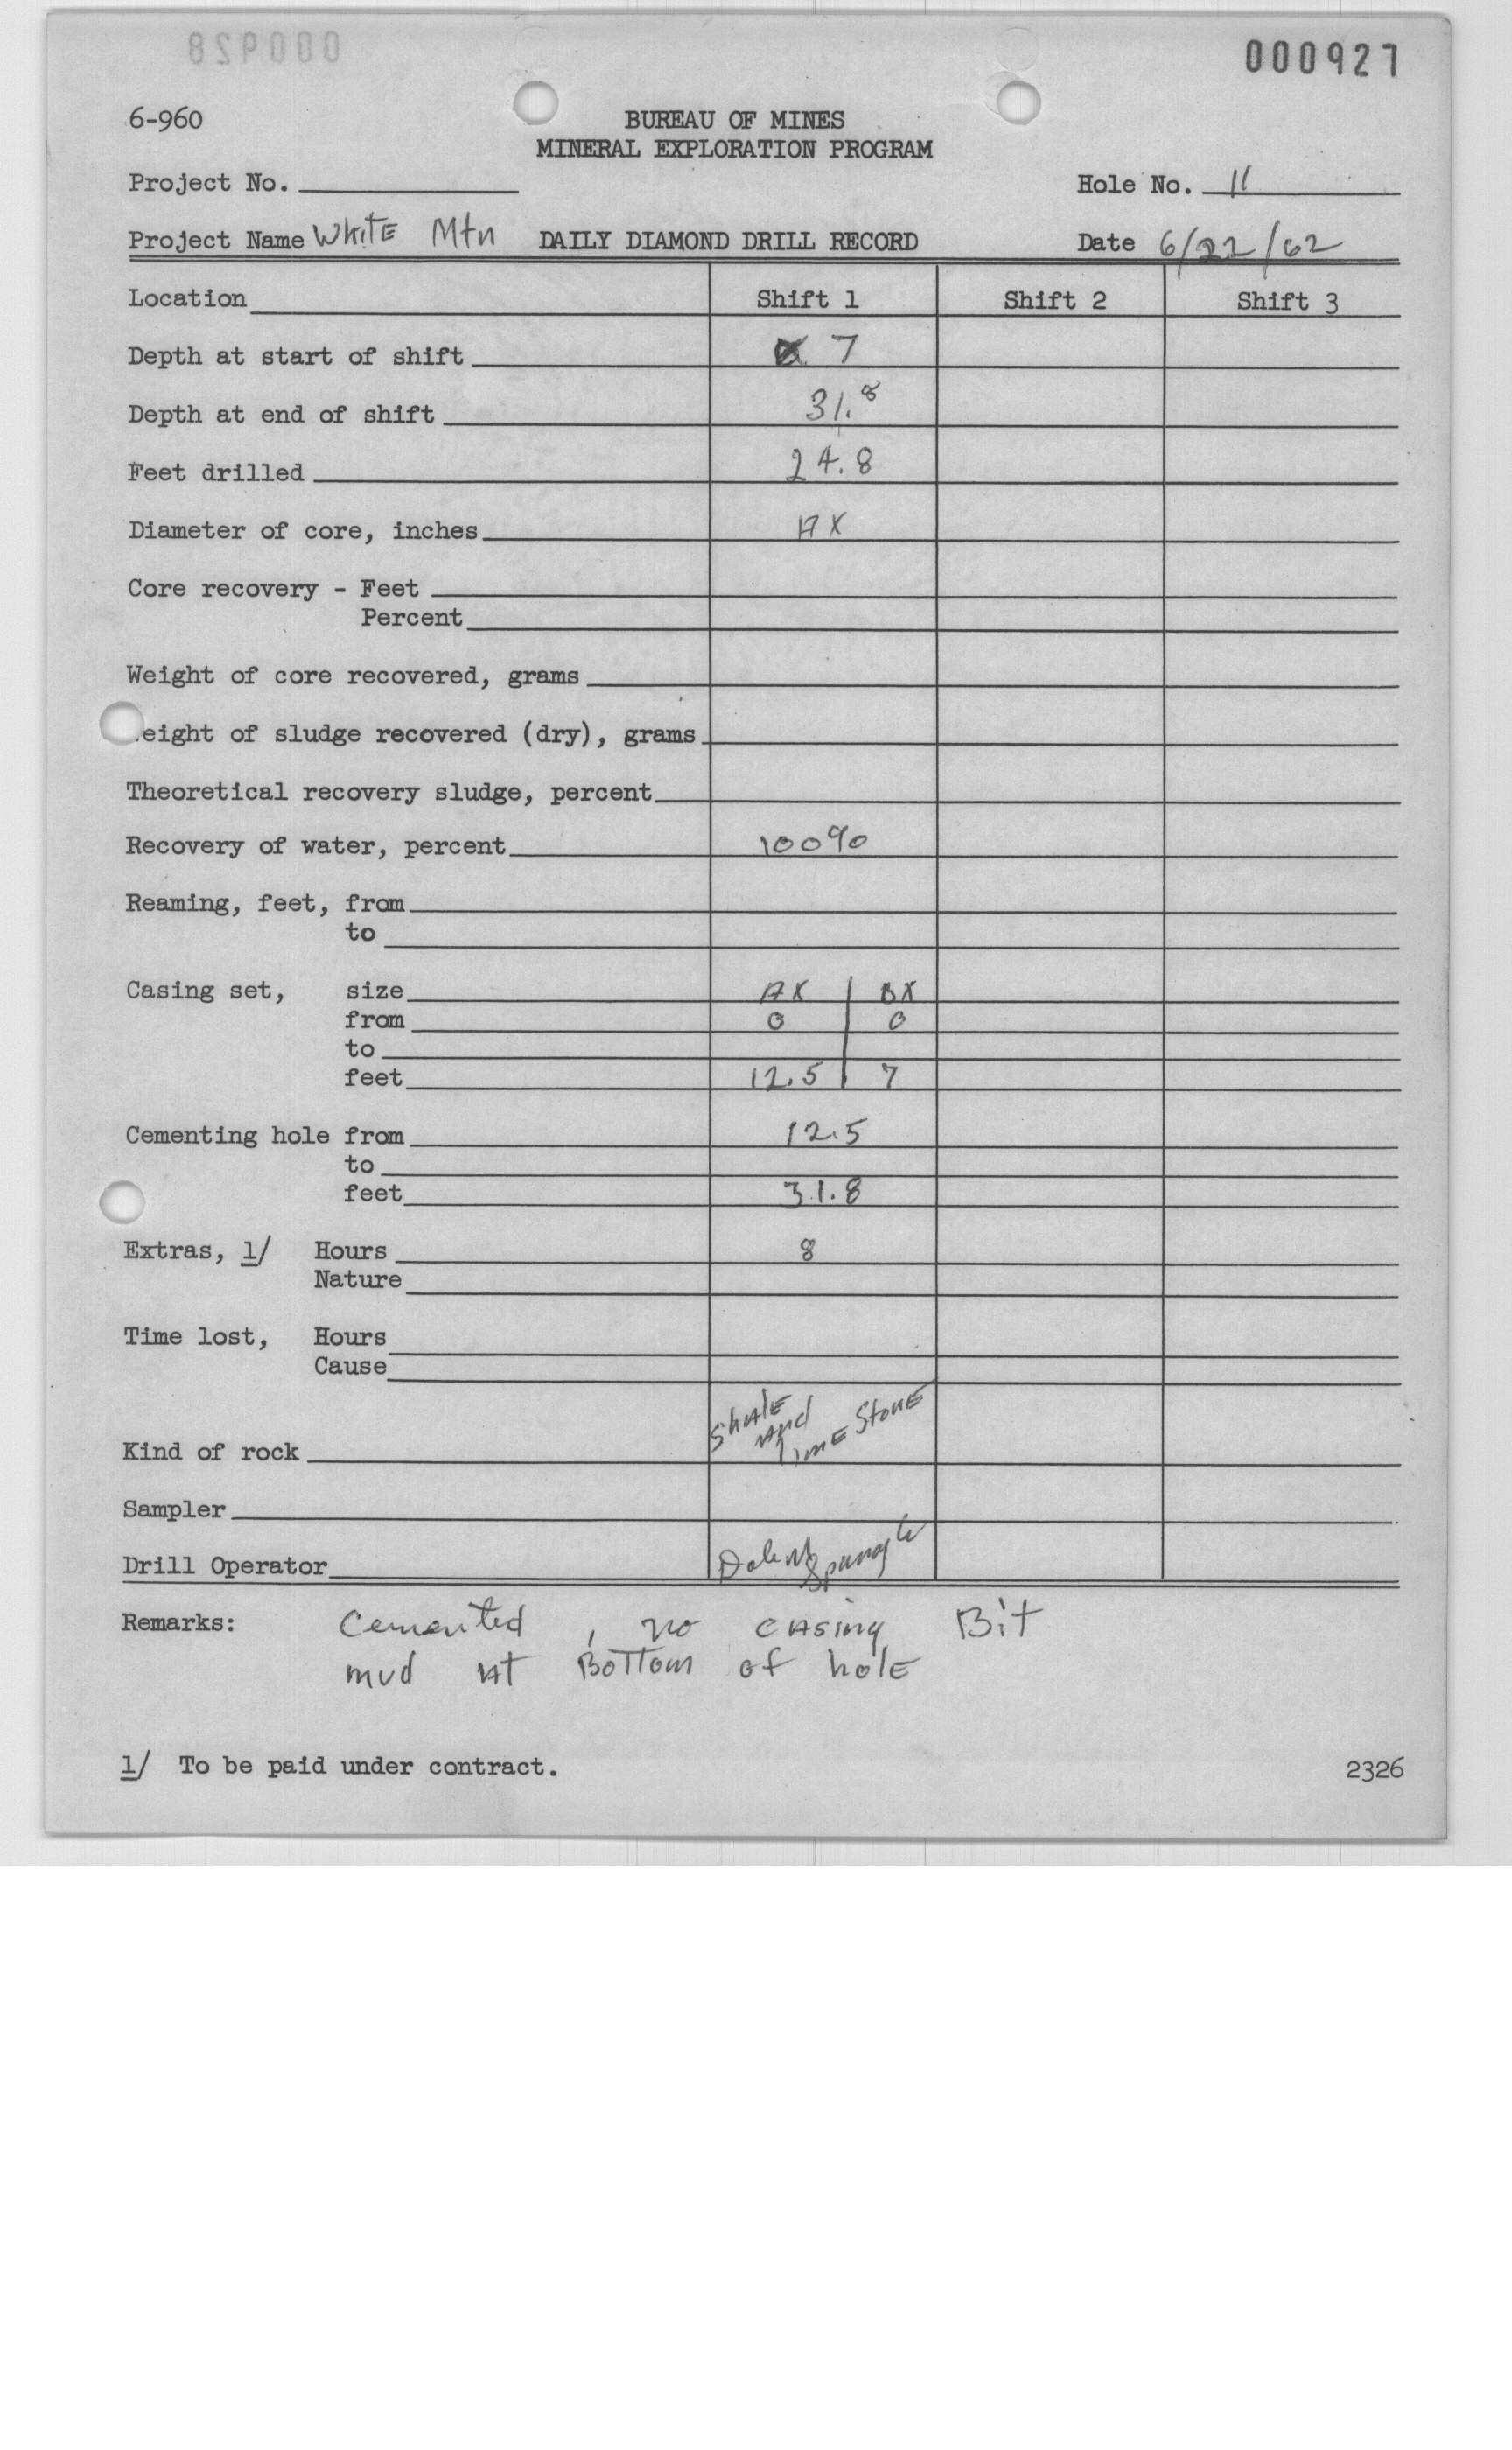 000928
000927
6-960
BUREAU OF MINES
MINERAL EXPLORATION PROGRAM
Project No.
Hole No. 11
Project Name WhitE Mtn DAILY DIAMOND DRILL RECORD Date 6/22/62
Location Shift 1 Shift 2 Shift 3
Depth at start of shift 7
Depth at end of shift 31.8
Feet drilled 24.8
Diameter of core, inches AX
Core recovery - Feet
Percent
Weight of core recovered, grams
eight of sludge recovered (dry), grams
Theoretical recovery sludge, percent
Recovery of water, percent 100%
Reaming, feet, from
to
Casing set, size AX BX
from 0 0
to
feet 12.5 7
Cementing hole from 12.5
to
feet 31.8
Extras, 1/ Hours 8
Nature
Time lost, Hours
Cause
ShAlE
And
Kind of rock limE StonE
Sampler
Drill Operator
Remarks: Cemented , no cAsing Bit
mud At Bottom of holE
1/ To be paid under contract.
2326